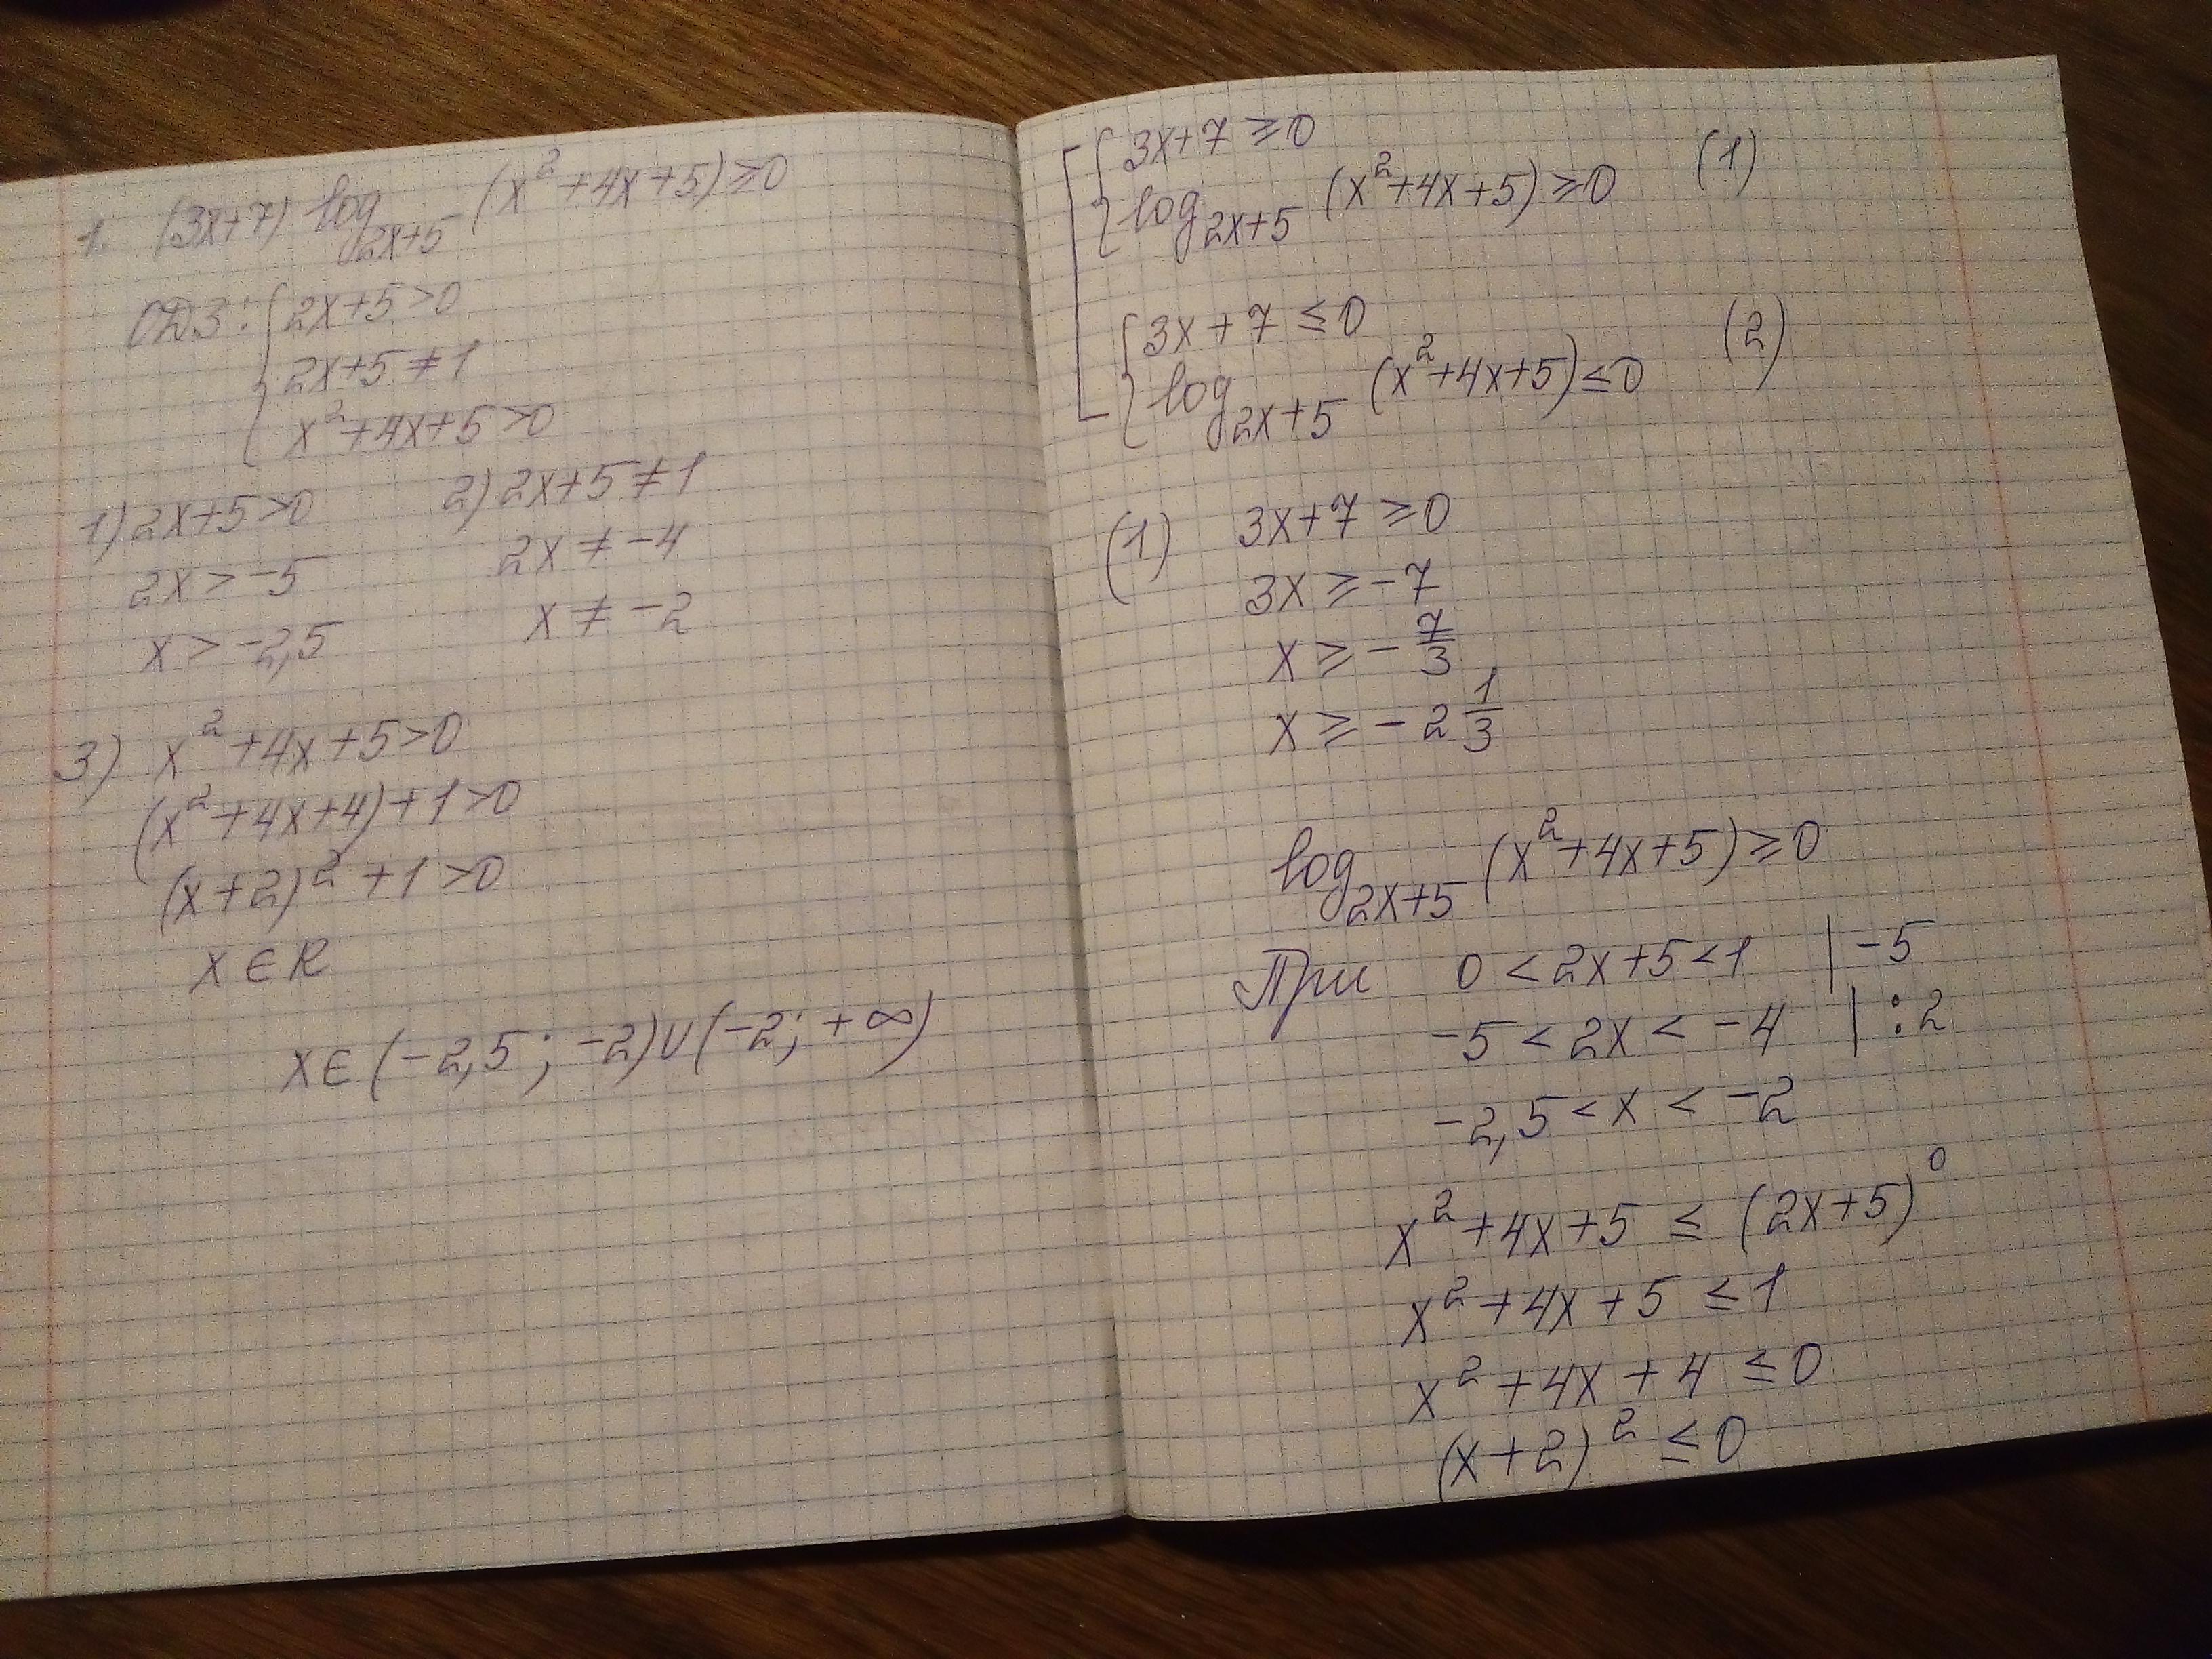 1. (3x+7) log₂ₓ₊₅ (x²+4x+5) ≥ 0
ОДЗ: { 2x+5>0
2x+5≠1
x²+4x+5>0
1) 2x+5>0
2x > -5
x > -2,5
2) 2x+5≠1
2x ≠ -4
x ≠ -2
3) x²+4x+5>0
(x²+4x+4)+1>0
(x+2)²+1>0
x ∈ R
x ∈ (-2,5; -2)∪(-2; +∞)
[ { 3x+7 ≥ 0
log₂ₓ₊₅ (x²+4x+5) ≥ 0 (1)
{ 3x+7 ≤ 0
log₂ₓ₊₅ (x²+4x+5) ≤ 0 (2)
(1) 3x+7 ≥ 0
3x ≥ -7
x ≥ -7/3
x ≥ -2 1/3
log₂ₓ₊₅ (x²+4x+5) ≥ 0
При 0 < 2x+5 < 1 | -5
-5 < 2x < -4 | :2
-2,5 < x < -2
x²+4x+5 ≤ (2x+5)⁰
x²+4x+5 ≤ 1
x²+4x+4 ≤ 0
(x+2)² ≤ 0